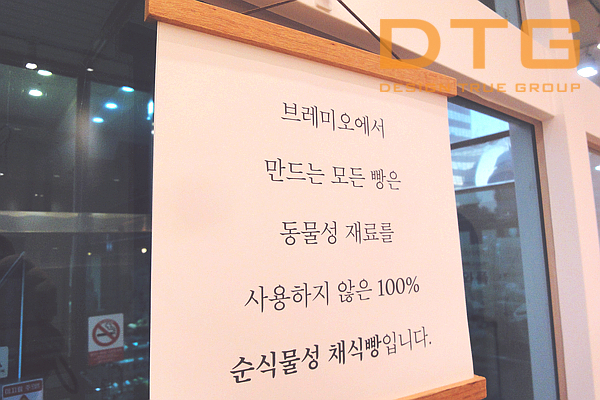 DTG
DESIGN TRUE GROUP
브레미오에서
만드는 모든 빵은
동물성 재료를
사용하지 않은 100%
순식물성 채식빵입니다.